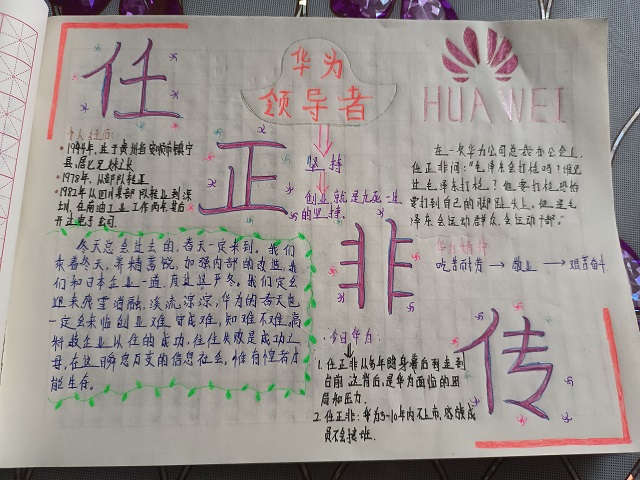 任
正
非
传
华为
领导者
HUAWEI
个人过往:
1944年,生于贵州省安顺市镇宁
县,居七兄妹之长
1978年,从部队转正
1982年从四川某部队转业到深
圳,在南油工业工作两年来自
开
公司
坚持
创业就是九死一生
的坚持。
在一次华为公司总裁办公会上,
任正非问:"毛泽东会打枪吗?谁见
过毛泽东打枪?
打到自己的脚趾头上。但是毛
泽东会运动群众,会运动干部。"
华为精神
吃苦耐劳 → 敬业 → 艰苦奋斗
冬天总会过去的,春天一定来到。我们
乘着冬天,养精蓄锐,加强内部的改造,我
们和日本企业一道,度过这严冬。我们定会
迎来残雪消融,溪流淙淙,华为的春天也
一定会来临创业难,守成难,知难不难,高
科技企业以往的成功,往往失败是成功之
母,在这瞬息万变的信息社会,惟有惶者才
能生存。
今日华为:
1. 任正非从多年随身着后到走到
台前,这背后,是华为面临的困
局和压力。
2. 任正非:华为3~10年内不上市,家族成
员不会接班.